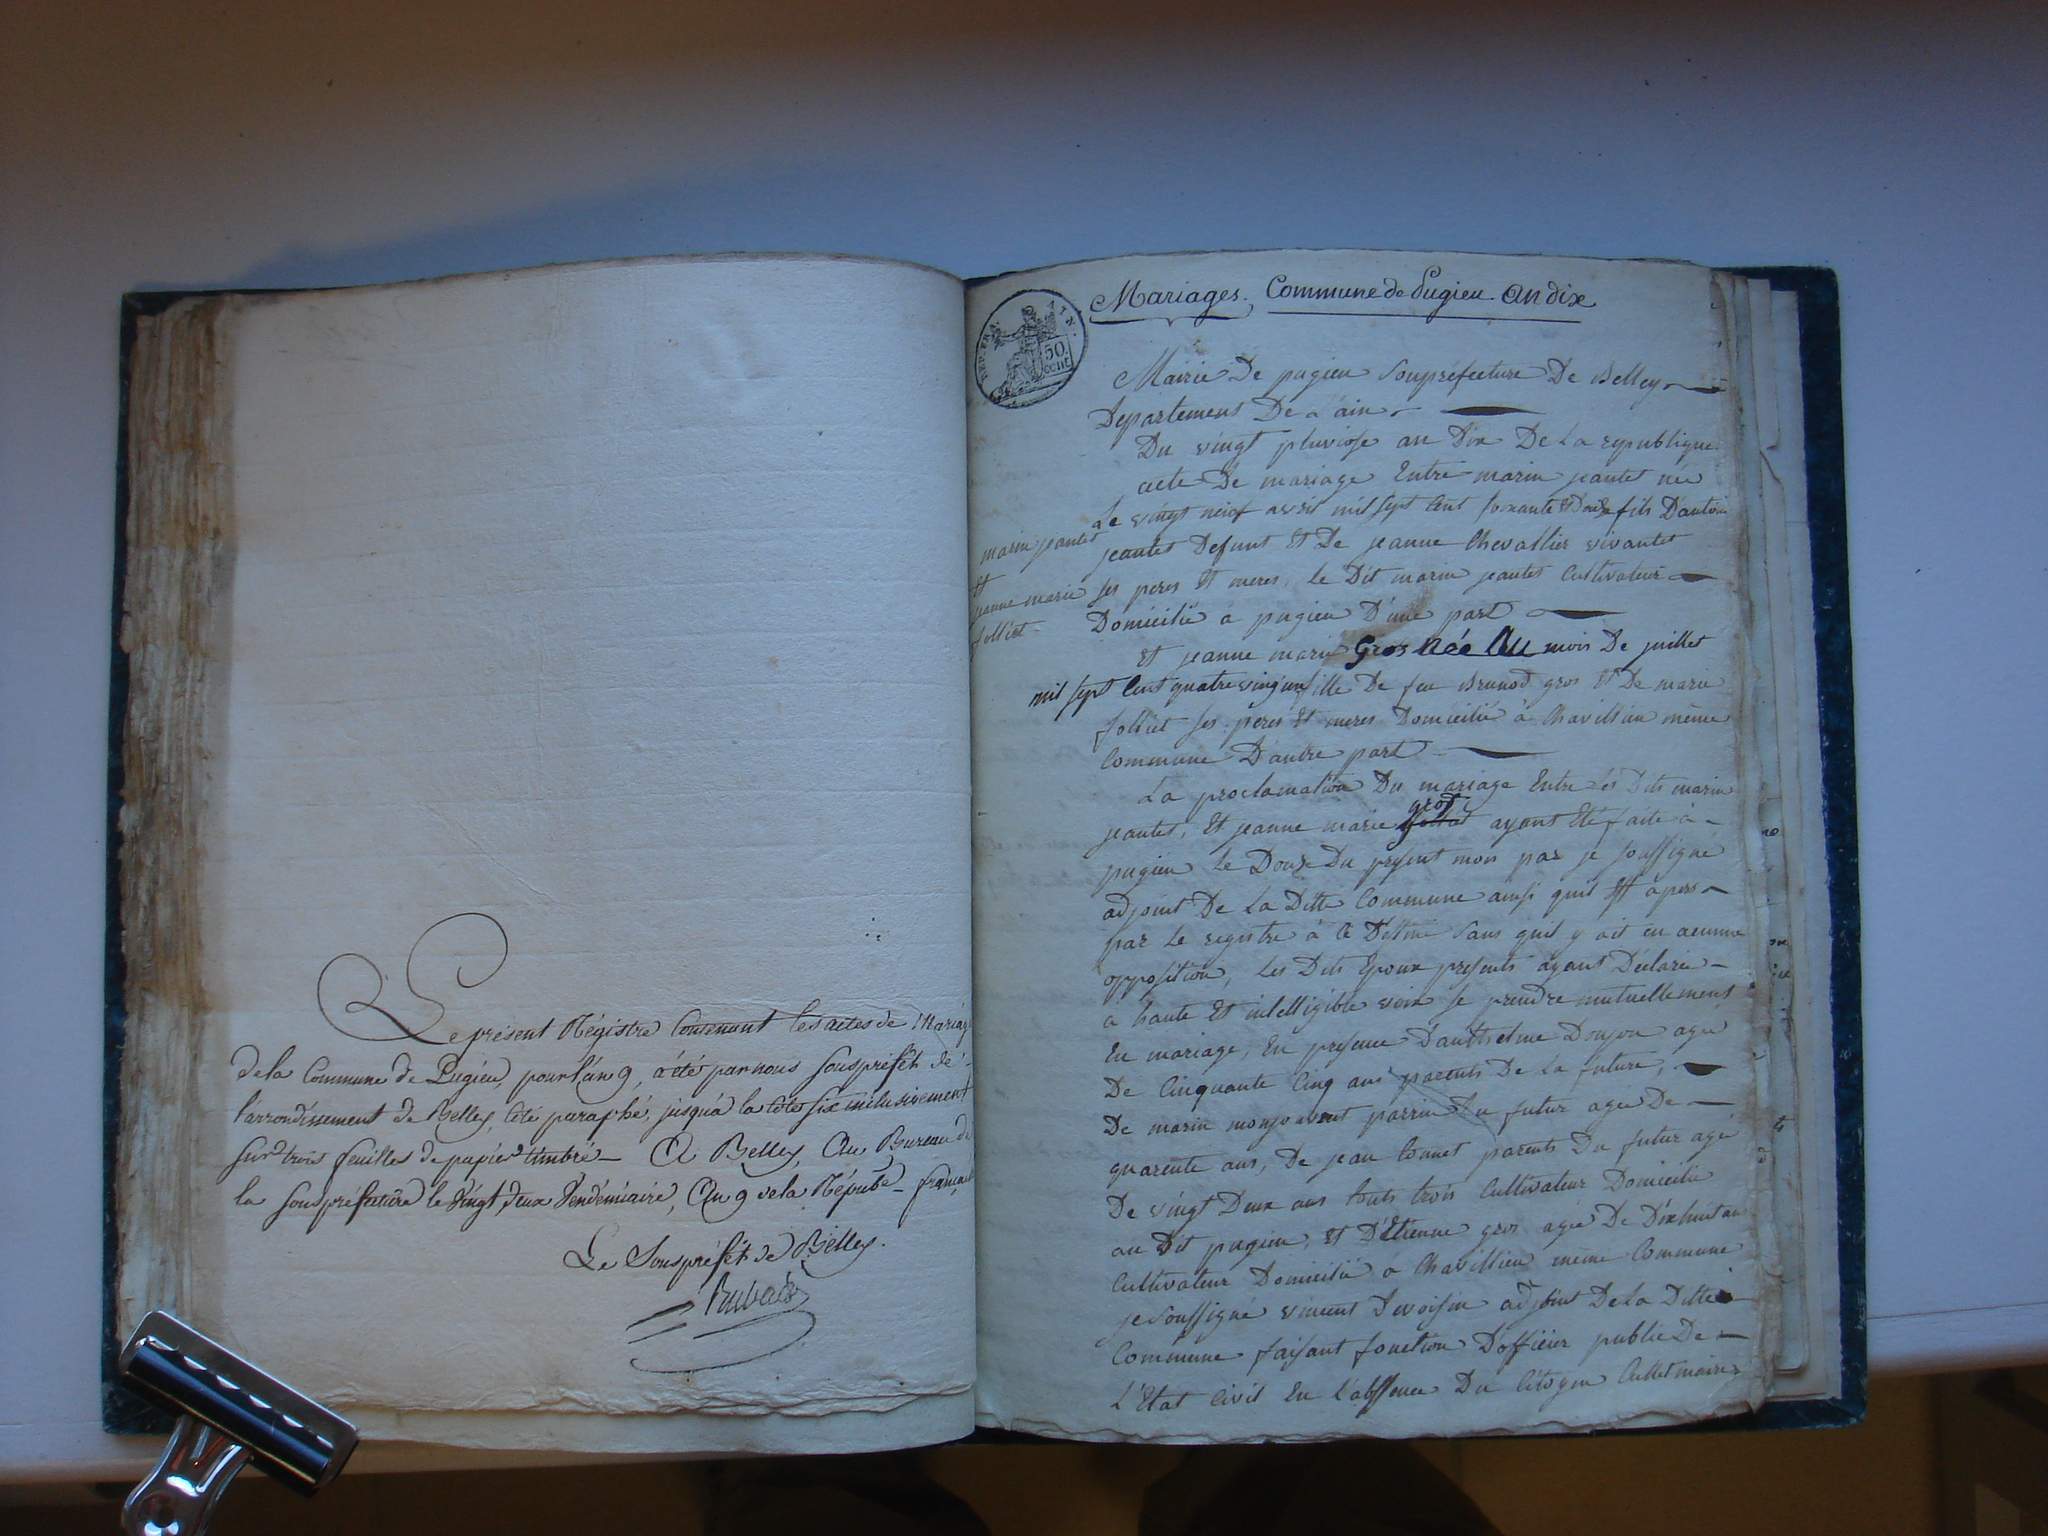 Le présent Régistre Contenant les actes de Mariage
de la Commune de Pugieu, pour l'an 9, a été par nous Sousprefêt de
l'arrondissement de Belley, côté paraphé, jusqu'à la côte six inclusivement
sur trois feuilles de papier timbré — A Belley, Au Bureau de
la Sousprefecture le Vingt deux Vendemiaire, An 9 de la Répub.e française
Le Sousprefêt de Belley.
REP. FRA.
AIN.
50
cent
Mariages. Commune de Pugieu. An dix
Mairie De pugieu Souprefecture De Belley
Departement De L'ain
Du vingt pluviose an Dix De La republique
acte De mariage Entre marin jeantet née
Le vingt neiof avril mil sept Cent soixante Et Douze fils D'antoine
jeantet Defunt Et De jeanne Chevallier vivantes
ses peres Et meres, le Dit marin jeantet Cultivateur
Domicilié a pugieu D'une part
marin jeantet
Et
jeanne marie
folliet
Et jeanne marie Gros Née Au mois De juillet
mil sept Cent quatre vingt un fille De feu Brunod gros Et De marie
folliet ses peres Et meres Domicilié à Chavillieu même
Commune D'autre part
La proclamation Du mariage Entre Les Dits marin
gros
jeantet, Et jeanne marie ayant Eté faite à
pugieu Le Douze Du present mois par je soussigné
adjoint De La Ditte Commune ainsi quil Est apers
par Le registre à Ce Destiné sans quil y ait eu aucunne
opposition, Les Dits Epoux presents ayant Déclaré
a haute Et intelligible voix se prendre mutuellement
En mariage, En presence D'anthelme Donjon agé
De Cinquante Cinq ans parents De La future,
De marin monjovent parrin Du futur agée De
quarente ans, De jean Connet parents Du futur agé
De vingt Deux ans touts trois Cultivateur Domicilié
au Dit pugieu, Et D'Etienne gros agée De Dixhuit an
Cultivateur Domicilié a Chavillieu même Commune
je soussigné vincent Devoisin adjoint De La Ditte
Commune faisant fonction D'officier public De
L'Etat Civil En L'absence Du Citoyen Cullet maire